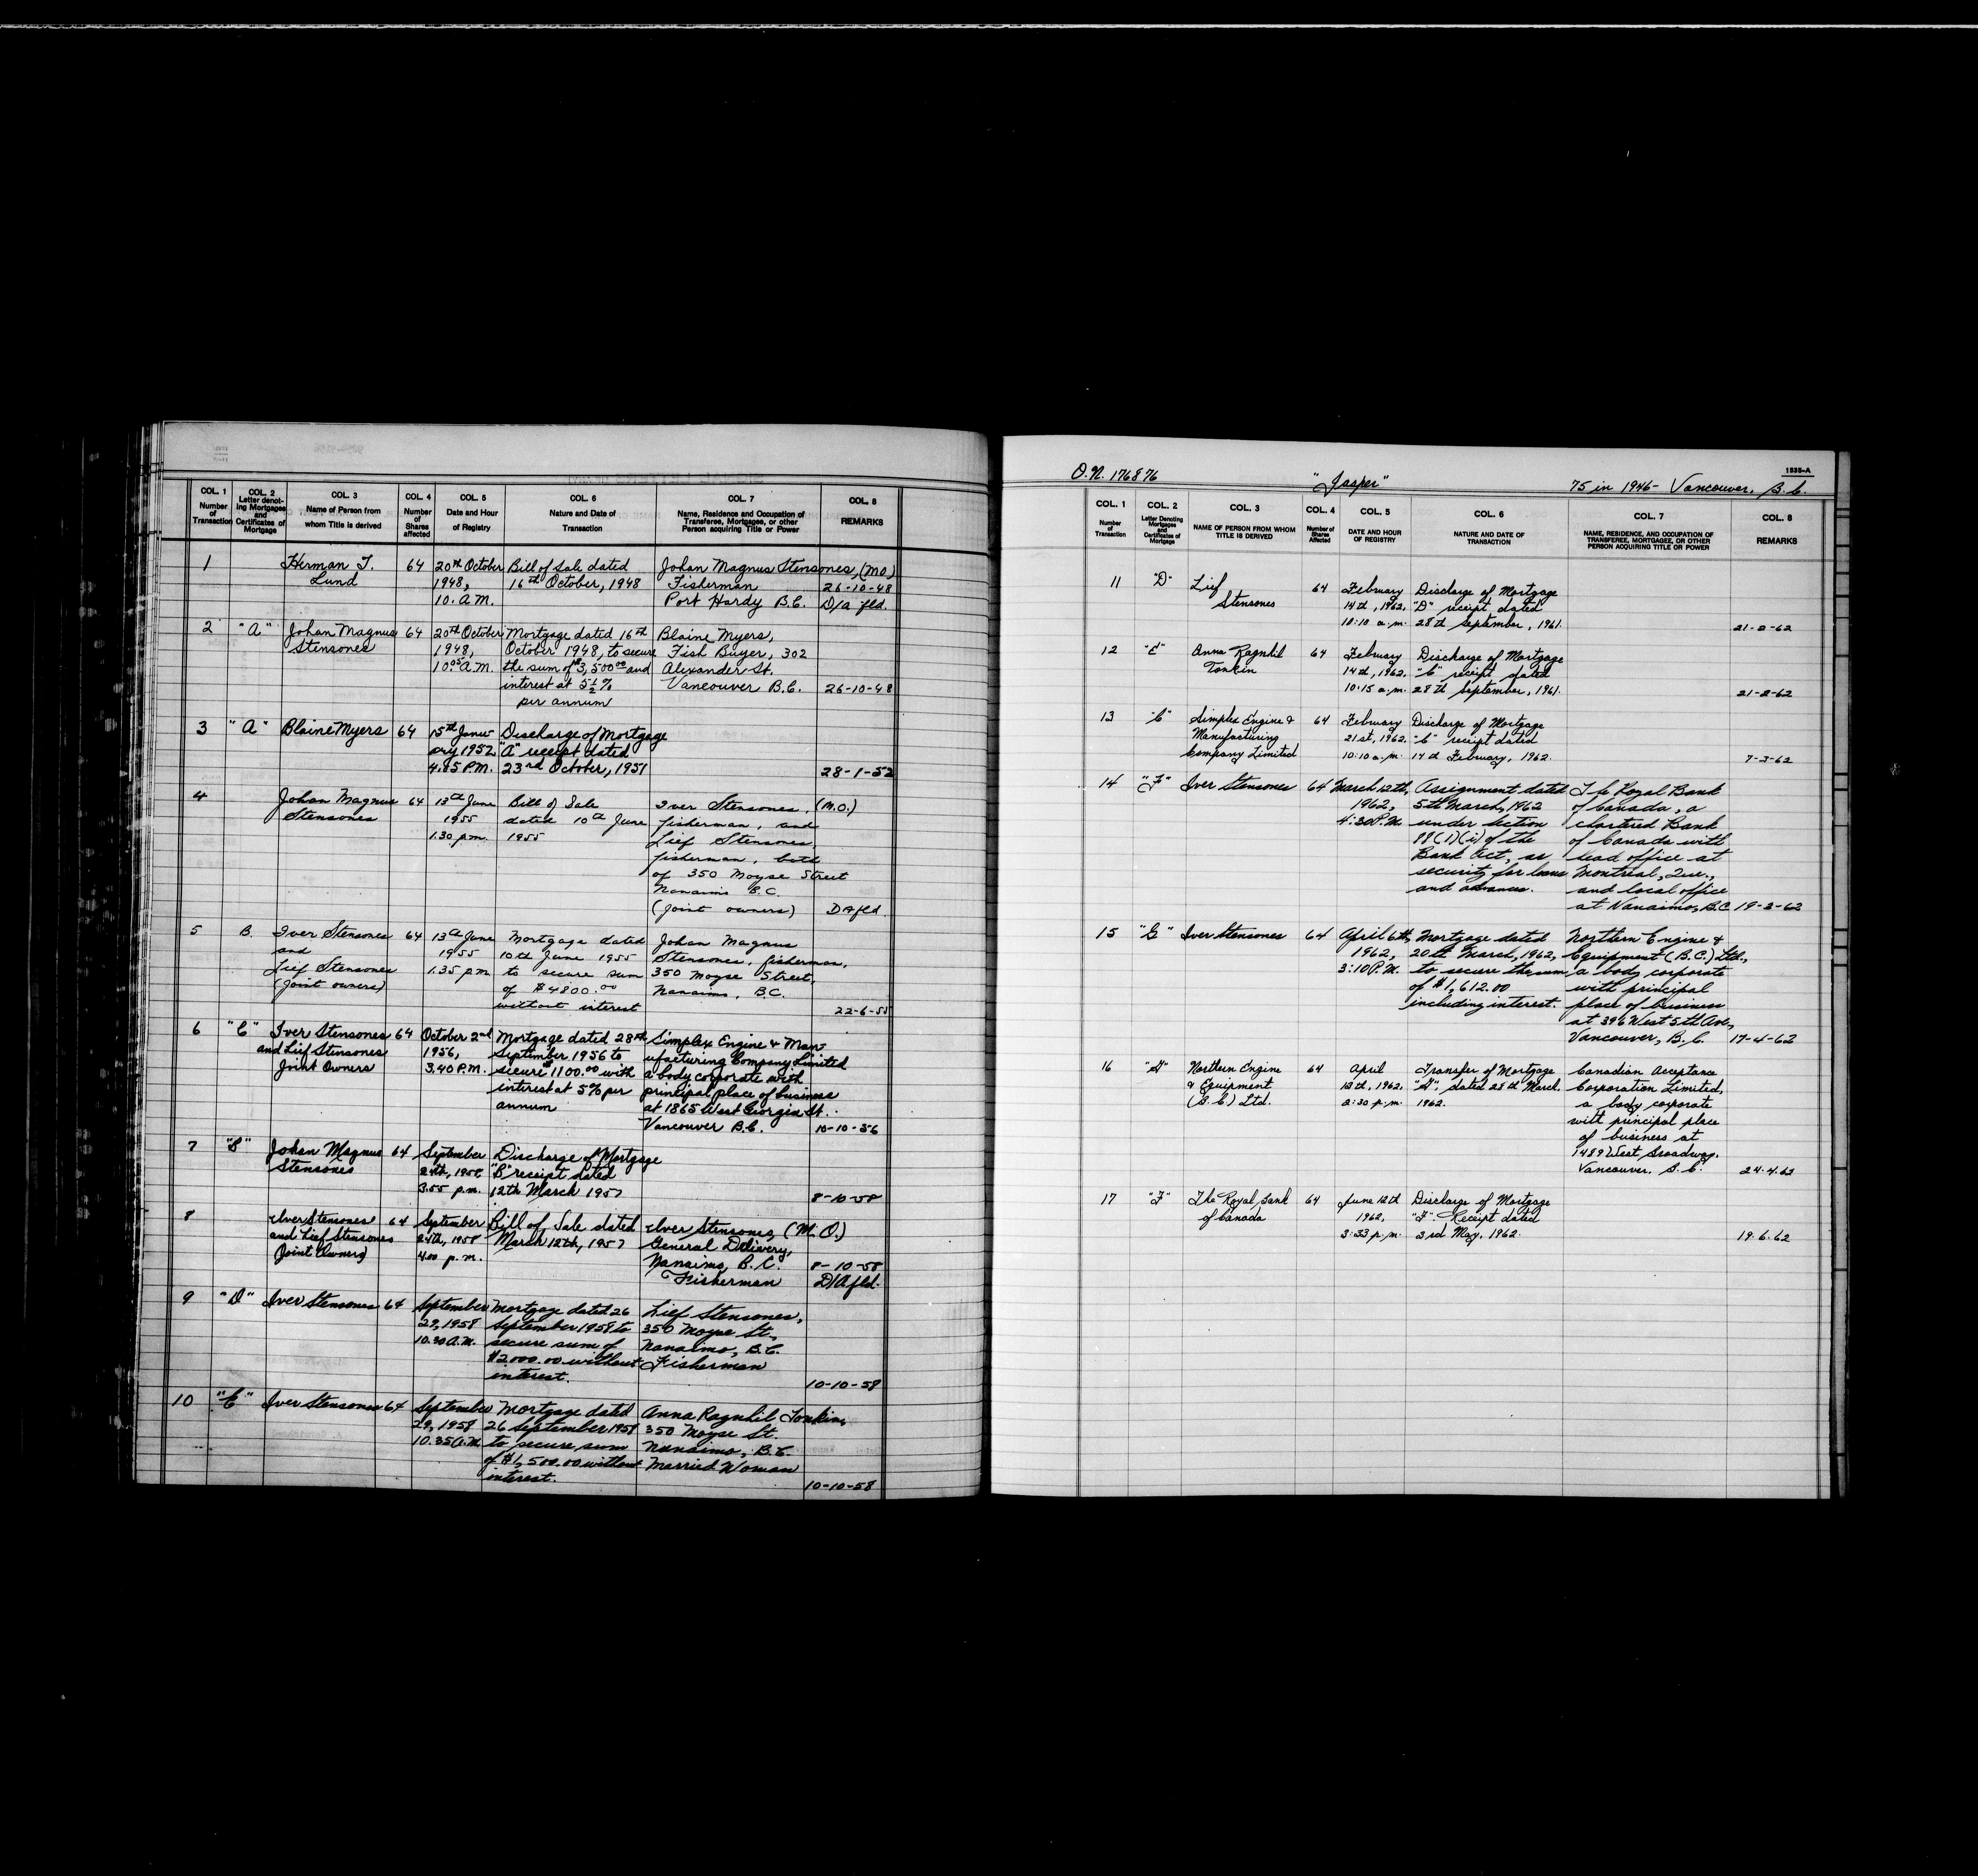 COL. 1 Number of Transaction
COL. 2 Letter denoting Mortgages and Certificates of Mortgage
COL. 3 Name of Person from whom Title is derived
COL. 4 Number of Shares affected
COL. 5 Date and Hour of Registry
COL. 6 Nature and Date of Transaction
COL. 7 Name, Residence and Occupation of Transferee, Mortgagee, or other Person acquiring Title or Power
COL. 8 REMARKS
1 Herman T. 64 20th October Bill of Sale dated Johan Magnus Stensones, (M.O)
Lund 1948, 16th October, 1948 Fisherman 26-10-48
10. A.M. Port Hardy B.C. D/a fld.
2 "A" Johan Magnus 64 20th October Mortgage dated 16th Blaine Myers,
Stensones 1948, October 1948, to secure Fish Buyer, 302
10.05 A.M. the sum of $3,500.00 and Alexander St.
interest at 5 1/2 % Vancouver B.C. 26-10-48
per annum
3 "A" Blaine Myers 64 15th Janu- Discharge of Mortgage
ary 1952 "A" receipt dated
4.25 P.M. 23rd October, 1951 28-1-52
4 Johan Magnus 64 13th June Bill of Sale Iver Stensones, (M.O.)
Stensones 1955 dated 10th June fisherman, and
1.30 p.m. 1955 Lief Stensones,
fisherman, both
of 350 Moyse Street
Nanaimo B.C.
(joint owners) D A fld.
5 B. Iver Stensones 64 13th June Mortgage dated Johan Magnus
and 1955 10th June 1955 Stensones, fisherman,
Lief Stensones 1.35 p.m. to secure sum 350 Moyse Street,
(joint owners) of $4800.00 Nanaimo, B.C.
without interest 22-6-55
6 "C" Iver Stensones 64 October 2nd Mortgage dated 28th Simplex Engine & Man-
and Lief Stensones 1956, September 1956 to ufacturing Company Limited
Joint Owners 3.40 P.M. secure $1100.00 with a body corporate with
interest at 5% per principal place of business
annum at 1865 West Georgia St.
Vancouver B.C. 10-10-56
7 "B" Johan Magnus 64 September Discharge of Mortgage
Stensones 24th, 1958 "B" receipt dated
3.55 p.m. 12th March 1957 8-10-58
8 Iver Stensones 64 September Bill of Sale dated Iver Stensones, (M.O.)
and Lief Stensones 24th, 1958 March 12th, 1957 General Delivery,
(Joint Owners) 4.00 p.m. Nanaimo, B.C. 8-10-58
Fisherman D/A fld.
9 "D" Iver Stensones 64 September Mortgage dated 26 Lief Stensones,
29, 1958 September 1958 to 350 Moyse St.,
10.30 A.M. secure sum of Nanaimo, B.C.
$2,000.00 without Fisherman
interest. 10-10-58
10 "E" Iver Stensones 64 September Mortgage dated Anna Ragnhil Tonkin,
29, 1958 26 September 1958 350 Moyse St.
10.35 A.M. to secure sum Nanaimo, B.C.
of $1,500.00 without Married Woman
interest. 10-10-58
1535-A
O.N. 176876 "Jasper" 75 in 1946 - Vancouver, B.C.
COL. 1 Number of Transaction
COL. 2 Letter Denoting Mortgages and Certificates of Mortgage
COL. 3 NAME OF PERSON FROM WHOM TITLE IS DERIVED
COL. 4 Number of Shares Affected
COL. 5 DATE AND HOUR OF REGISTRY
COL. 6 NATURE AND DATE OF TRANSACTION
COL. 7 NAME, RESIDENCE, AND OCCUPATION OF TRANSFEREE, MORTGAGEE, OR OTHER PERSON ACQUIRING TITLE OR POWER
COL. 8 REMARKS
11 "D" Lief 64 February Discharge of Mortgage
Stensones 14th, 1962. "D" receipt dated
10:10 a.m. 28th September, 1961. 21-2-62
12 "E" Anna Ragnhil 64 February Discharge of Mortgage
Tonkin 14th, 1962. "E" receipt dated
10:15 a.m. 28th September, 1961. 21-2-62
13 "C" Simplex Engine & 64 February Discharge of Mortgage
Manufacturing 21st, 1962. "C" receipt dated
Company Limited 10:10 a.m. 14th February, 1962. 7-3-62
14 "F" Iver Stensones 64 March 12th, Assignment dated The Royal Bank
1962, 5th March, 1962 of Canada, a
4:30 P.M. under Section chartered Bank
88(1)(i) of the of Canada with
Bank Act, as head office at
security for loans Montreal, Que.,
and advances. and local office
at Nanaimo, B.C. 19-3-62
15 "G" Iver Stensones 64 April 6th, Mortgage dated Northern Engine &
1962, 20th March, 1962, Equipment (B.C.) Ltd.,
3:10 P.M. to secure the sum a body corporate
of $1,612.00 with principal
including interest. place of business
at 396 West 5th Ave.,
Vancouver, B.C. 17-4-62
16 "G" Northern Engine 64 April Transfer of Mortgage Canadian Acceptance
& Equipment 12th, 1962. "G", dated 28th March. Corporation Limited,
(B.C.) Ltd. 2:30 p.m. 1962. a body corporate
with principal place
of business at
1489 West Broadway,
Vancouver, B.C. 24.4.62
17 "F" The Royal Bank 64 June 12th Discharge of Mortgage
of Canada 1962, "F". Receipt dated
3:33 p.m. 3rd May, 1962. 19.6.62